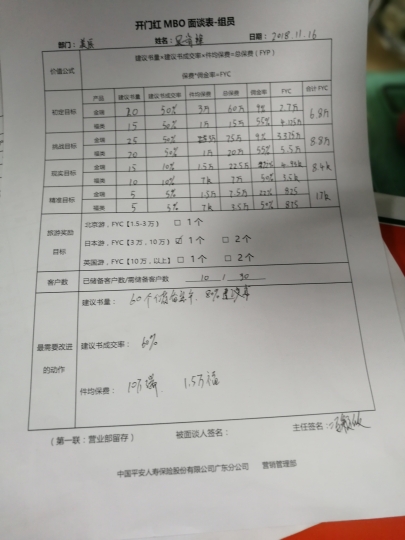 开门红 MBO 面谈表-组员
部门： 姓名： 日期：2018.11.16
价值公式 建议书量*建议书成交率*件均保费=总保费（FYP）
保费*佣金率=FYC
产品 建议书量 建议书成交率 件均保费 总保费 佣金率 FYC 合计 FYC
初定目标 金瑞 20 50% 3万 60万 9% 2.7万 6.8万
福类 15 50% 1万 15万 55%
挑战目标 金瑞 25 50% 75万 9% 8.8万
福类 20 50% 1万 20万 55% 5.5万
现实目标 金瑞 15 10% 1.5万 22.5万 8.4k
福类 10 10% 7k 7万 50% 3.5k
精准目标 金瑞 5 5% 1.5万 7.5万 825 17k
福类 5 5% 7k 3.5万 50% 875
旅游奖励目标 北京游，FYC【1.5-3 万） □ 1个
日本游，FYC【3 万，10 万） ☑ 1个 □ 2个
英国游，FYC【10 万，以上） □ 1个 □ 2个
客户数 已储备客户数/需储备客户数 10 / 30
最需要改进的动作 建议书量： 60个
建议书成交率： 60%
件均保费： 10万 1.5万福
（第一联：营业部留存） 被面谈人签名： 主任签名：
中国平安人寿保险股份有限公司广东分公司 营销管理部